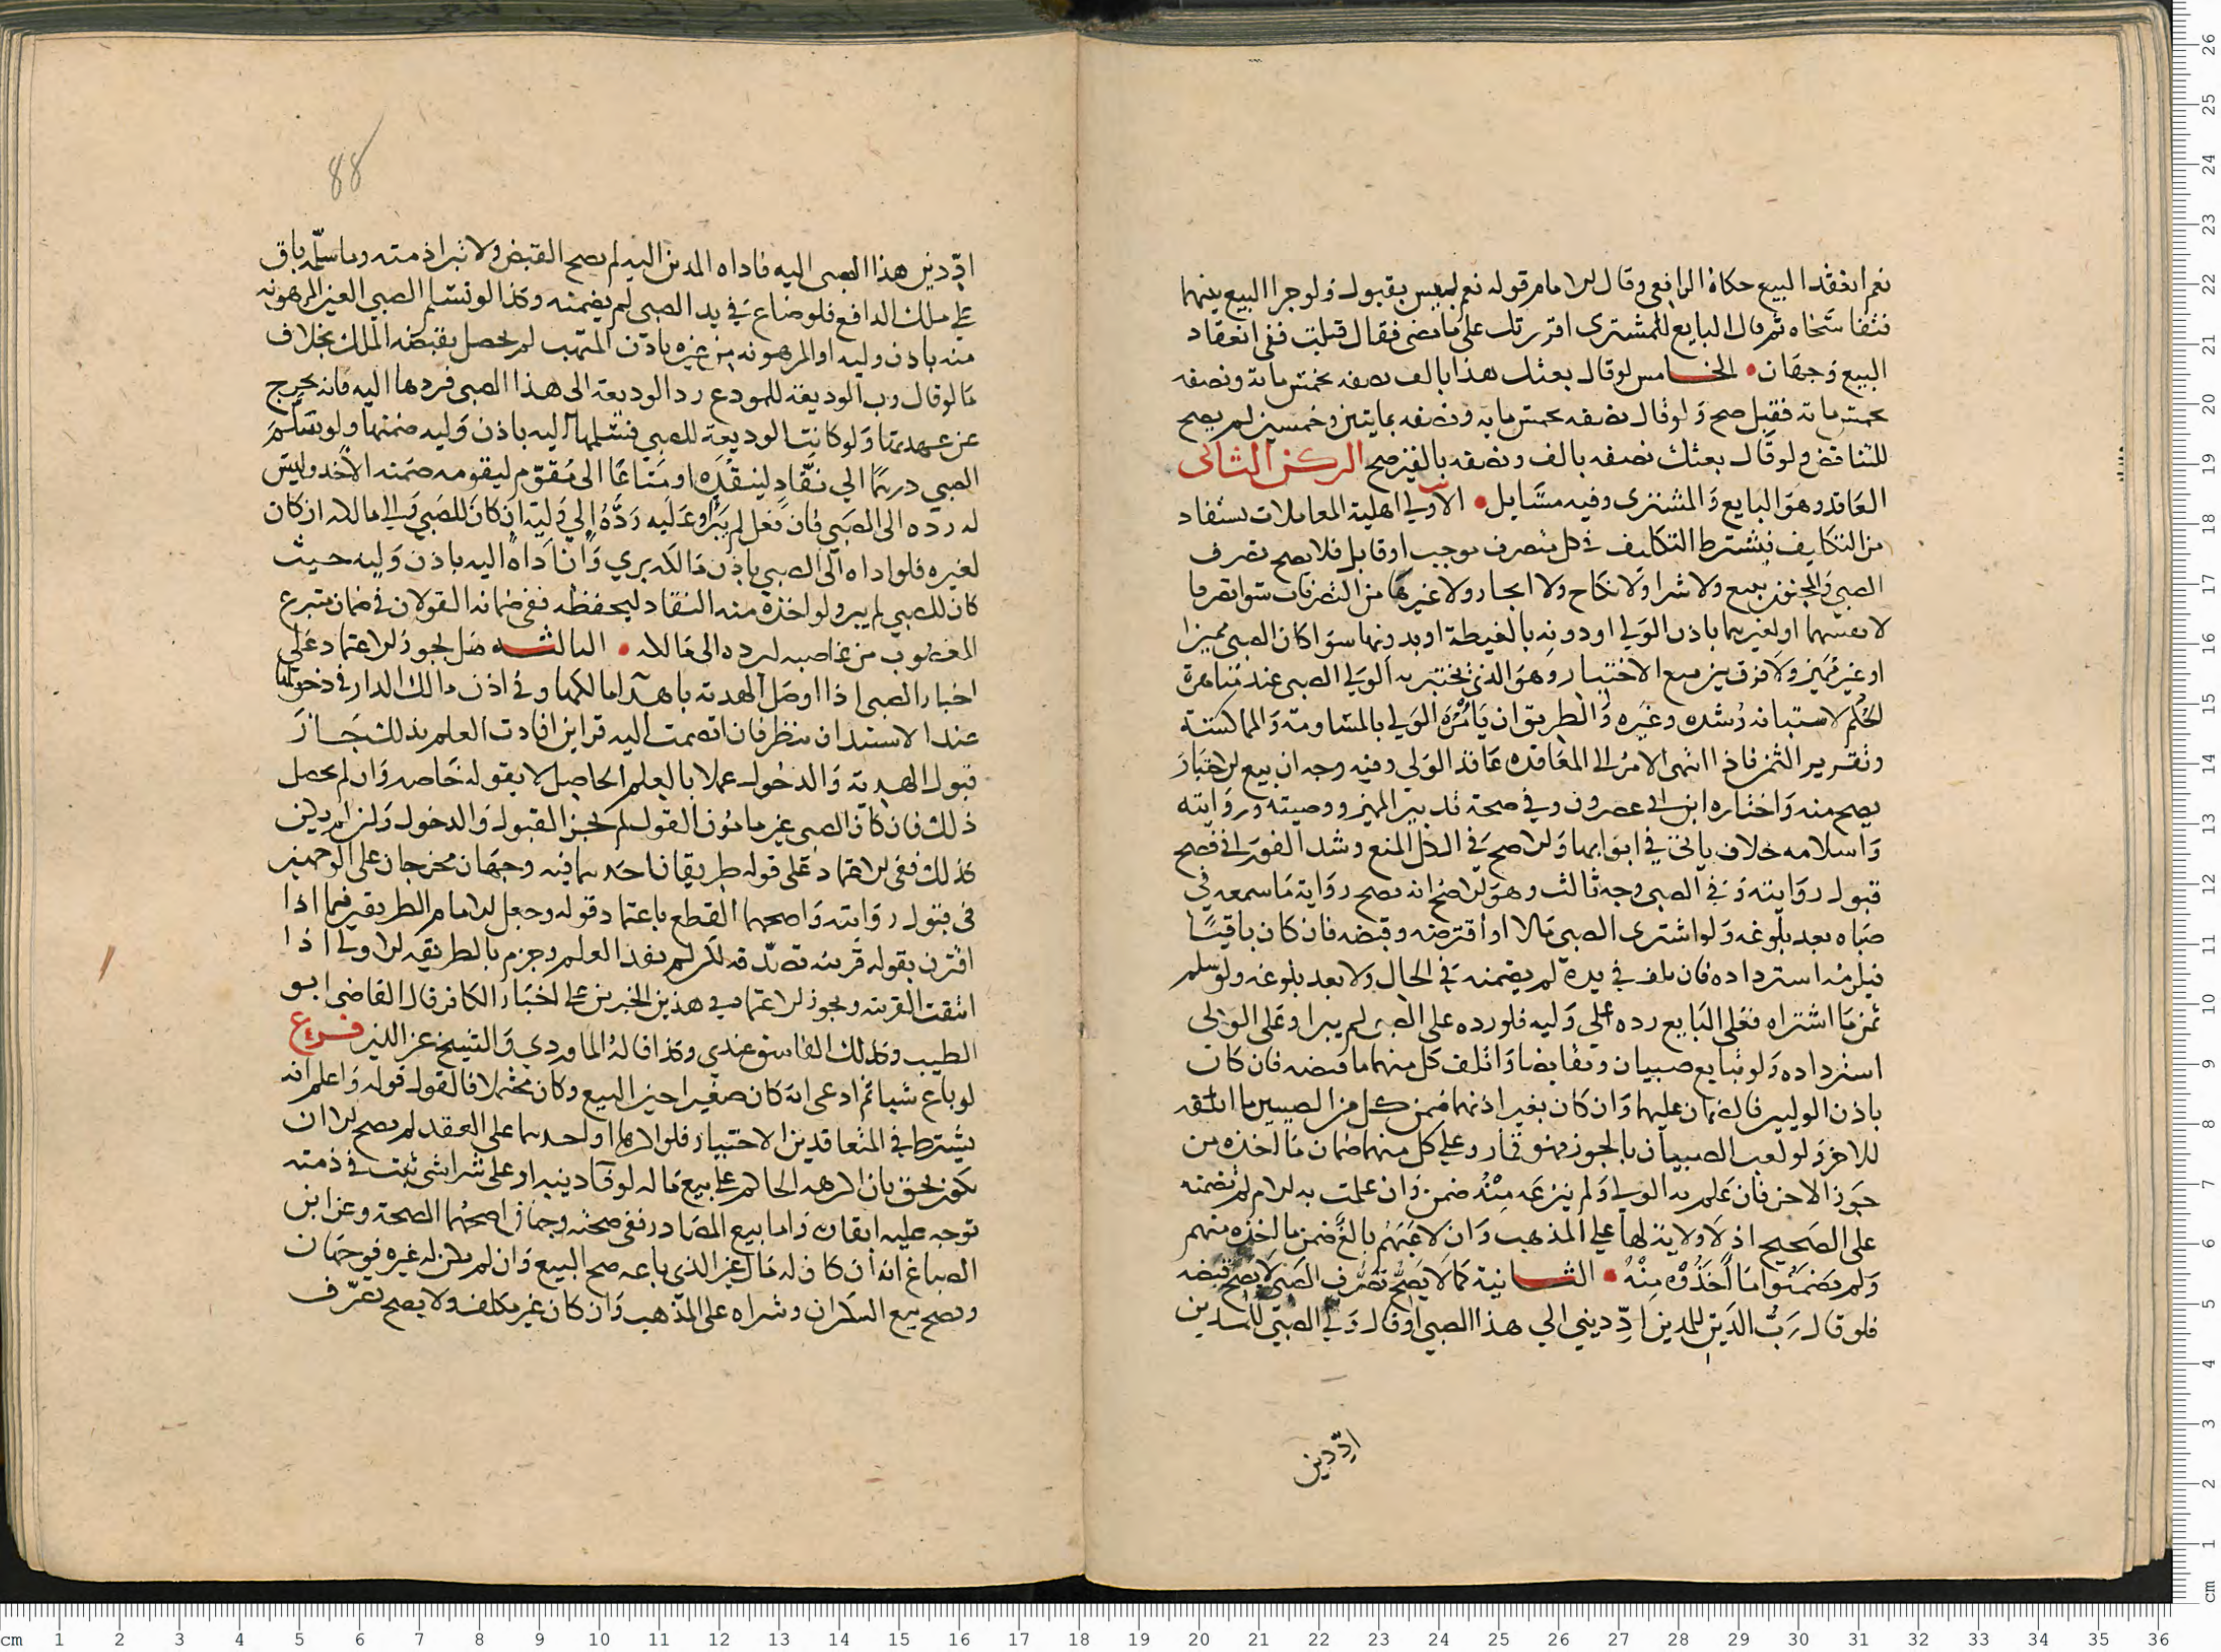 نعم انعقد البيع حكاه الرافعي وقال الامام قوله نعم ليس بقبول ولو جرا البيع بينهما
فتفاسخاه ثم قال البايع للمشتري اقررتك على ما مضى فقال قبلت ففي انعقاد
البيع وجهان • الخامس لو قال بعتك هذا بالف نصفه بخمس ماية ونصفه
بخمس ماية فقبل صح ولو قال نصفه بخمس ماية ونصفه بمايتين وخمسين لم يصح
للتناقض ولو قال بعتك نصفه بالف ونصفه بالفين صح الركن الثاني
العاقد وهو البايع والمشتري وفيه مسايل • الاولى اهلية المعاملات تستفاد
من التكليف فيشترط التكليف في كل متصرف موجب او قابل فلا يصح تصرف
الصبي والمجنون ببيع ولا شرا ولا نكاح ولا ايجار ولا غيرها من التصرفات سوا تصرفا
لانفسهما او لغيرهما باذن الولي او دونه بالغبطة او بدونها سوا كان الصبي مميزا
او غير مميز ولا فرق بين بيع الاختبار وهو الذي يختبر به الولي الصبي عند مناهزة
الحلم لاستبانه رشده وغيره والطريق ان يامره الولي بالمساومة والمماكسة
وتقرير الثمن فاذا انتهى الامر الى المعاقدة عاقد الولي وفيه وجه ان بيع الاختبار
يصح منه واختاره ابن ابي عصرون وفي صحة تدبير المميز ووصيته وروايته
واسلامه خلاف ياتي في ابوابها والاصح في الكل المنع وشد الفوراني فصح
قبول روايته وفي الصبي وجه ثالث وهو الاصح انه تصح رواية ما سمعه في
صباه بعد بلوغه ولو اشترى الصبي مالا او اقترضه وقبضه فان كان باقيا
فيلزمه استرداده فان تلف في يده لم يضمنه في الحال ولا بعد بلوغه ولو سلم
ثمن ما اشتراه فعلى البايع رده على وليه فلو رده على الصبي لم يبرا وعلى الولي
استرداده ولو تبايع صبيان وتقابضا واتلف كل منهما ما قبضه فان كان
باذن الوليين فالضمان عليهما وان كان بغير اذنهما ضمن كل من الصبيين ما اتلفه
للاخر ولو لعب الصبيان بالجوز فهو قمار وعلى كل منهما ضمان ما اخذه من
جوز الاخر فان علم به الولي ولم ينزعه منه ضمن وان علمت به الام لم تضمنه
على الصحيح اذ لا ولاية لها على المذهب وان لاعبهم بالغ ضمن ما اخذه منهم
ولم يضمنوا ما اخذوه منه • الثانية كما لا يصح تصرف الصبي لا يصح قبضه
فلو قال رب الدين للمدين اد ديني الي هذا الصبي او قال ولي الصبي للمدين
اد دين
88
اد دين هذا الصبي اليه فاداه المدين اليه لم يصح القبض ولا تبرا ذمته وما سلمه باق
على ملك الدافع فلو ضاع في يد الصبي لم يضمنه وكذا لو تسلم الصبي العين المرهونه
منه باذن وليه او المرهونه من غيره باذن المتهب لم يحصل بقبضه الملك بخلاف
ما لو قال رب الوديعة للمودع رد الوديعة الى هذا الصبي فردها اليه فانه يخرج
عن عهدتها ولو كانت الوديعة للصبي فتسلمها اليه باذن وليه ضمنها ولو تسلم
الصبي درهما الي نقاد لينقده او متاعا الى مقوم ليقومه ضمنه الاخذ وليس
له رده الى الصبي فان فعل لم يبرا وعليه رده الي وليه ان كان للصبي والى مالكه ان كان
لغيره فلو اداه الى الصبي باذن مالكه بري وان اداه اليه باذن وليه حيث
كان للصبي لم يبر ولو اخذه منه النقاد ليحفظه ففي ضمانه القولان في ضمان متبرع
المغصوب من غاصبه ليرده الى مالكه • الثالثة هل يجوز الاعتماد على
اخبار الصبي اذا اوصل الهدية باهدا مالكها وفي اذن مالك الدار في دخولها
عند الاستيذان ينظر فان انضمت اليه قراين افادت العلم بذلك جاز
قبول الهدية والدخول عملا بالعلم الحاصل لا بقوله خاصه وان لم يحصل
ذلك فان كان الصبي غير مامون القول لم يجز القبول والدخول وان لم يكن
كذلك ففي الاعتماد على قوله طريقان احدهما فيه وجهان مخرجان على الوجهين
في قبول روايته واصحهما القطع باعتماد قوله وجعل الامام الطريقين فيما اذا
اقترن بقوله قرينه تصدقه لكن لم يفد العلم وجزم بالطريقه الاولى اذا
انتفت القرينه ويجوز الاعتماد في هذين الخبرين على اخبار الكافر قال القاضي ابو
الطيب وكذلك الفاسق عندي وكذا قاله الماوردي والشيخ عز الدين فرع
لو باع شيا ثم ادعى انه كان صغيرا حين البيع وكان محتملا فالقول قوله واعلم انه
يشترط في المتعاقدين الاختيار فلو اكرها او احدهما على العقد لم يصح الا ان
يكون بحق بان اكرهه الحاكم على بيع ماله لوفا دينه او على شرا شي ثبت في ذمته
توجه عليه ايفاه واما بيع المصادر ففي صحته وجهان اصحهما الصحة وعن ابن
الصباغ انه ان كان له مال غير الذي باعه صح البيع وان لم يكن له غيره فوجهان
ويصح بيع السكران وشراه على المذهب وان كان غير مكلف ولا يصح تصرف